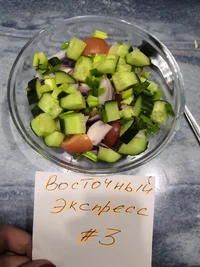 Восточный
экспресс
#3